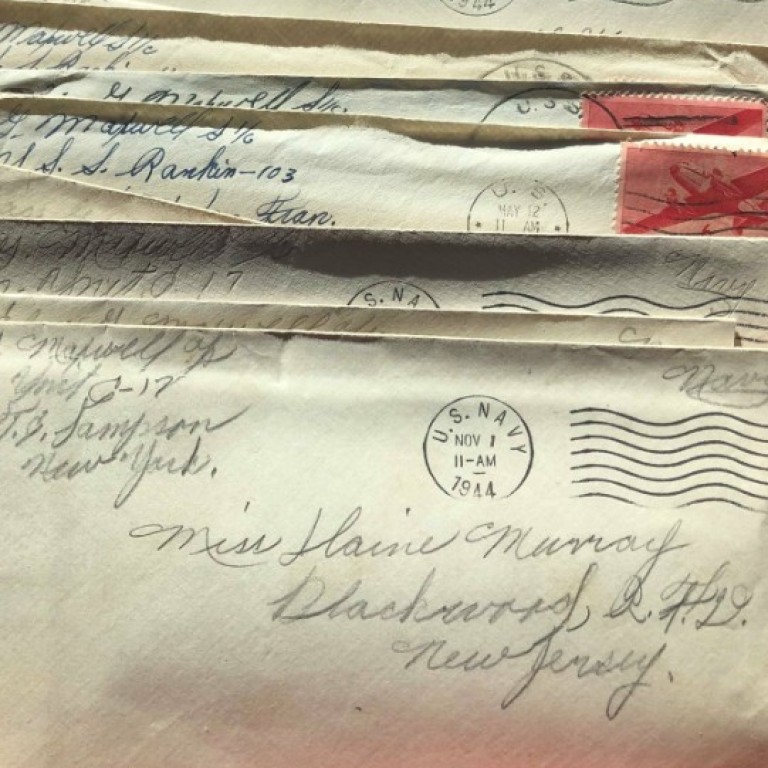 1944
Maxwell S 1/c
U.S.
G Maxwell S 1/c.
U.S.
G. Maxwell S 1/c
S. S. Rankin-103
Fran.
U. S.
MAY 12
11 AM
Maxwell
Unit 17
S. NA
Navy
Maxwell
Unit C-17
Sampson
New York.
U.S. NAVY
NOV 1
11-AM
1944
Navy
Miss Elaine Murray
Blackwood, R.F.D.
New Jersey.